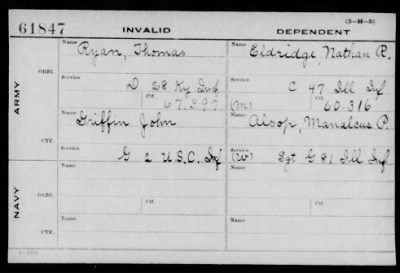 61847 INVALID DEPENDENT (3-91-5)
Name Ryan, Thomas Name Eldridge, Nathan R.
ORIG. Service D 28 Ky Inf Service C 47 Ill Inf
Ctf. 67.397 (M) Ctf. 60.316
ARMY
Name Griffin John Name Alsop, Manalcus P.
CTF. Service G 2 U.S.C. Inf Service (W) Sgt G 81 Ill Inf
Name Name
ORIG. Ctf. Ctf.
NAVY
Name Name
CTF.